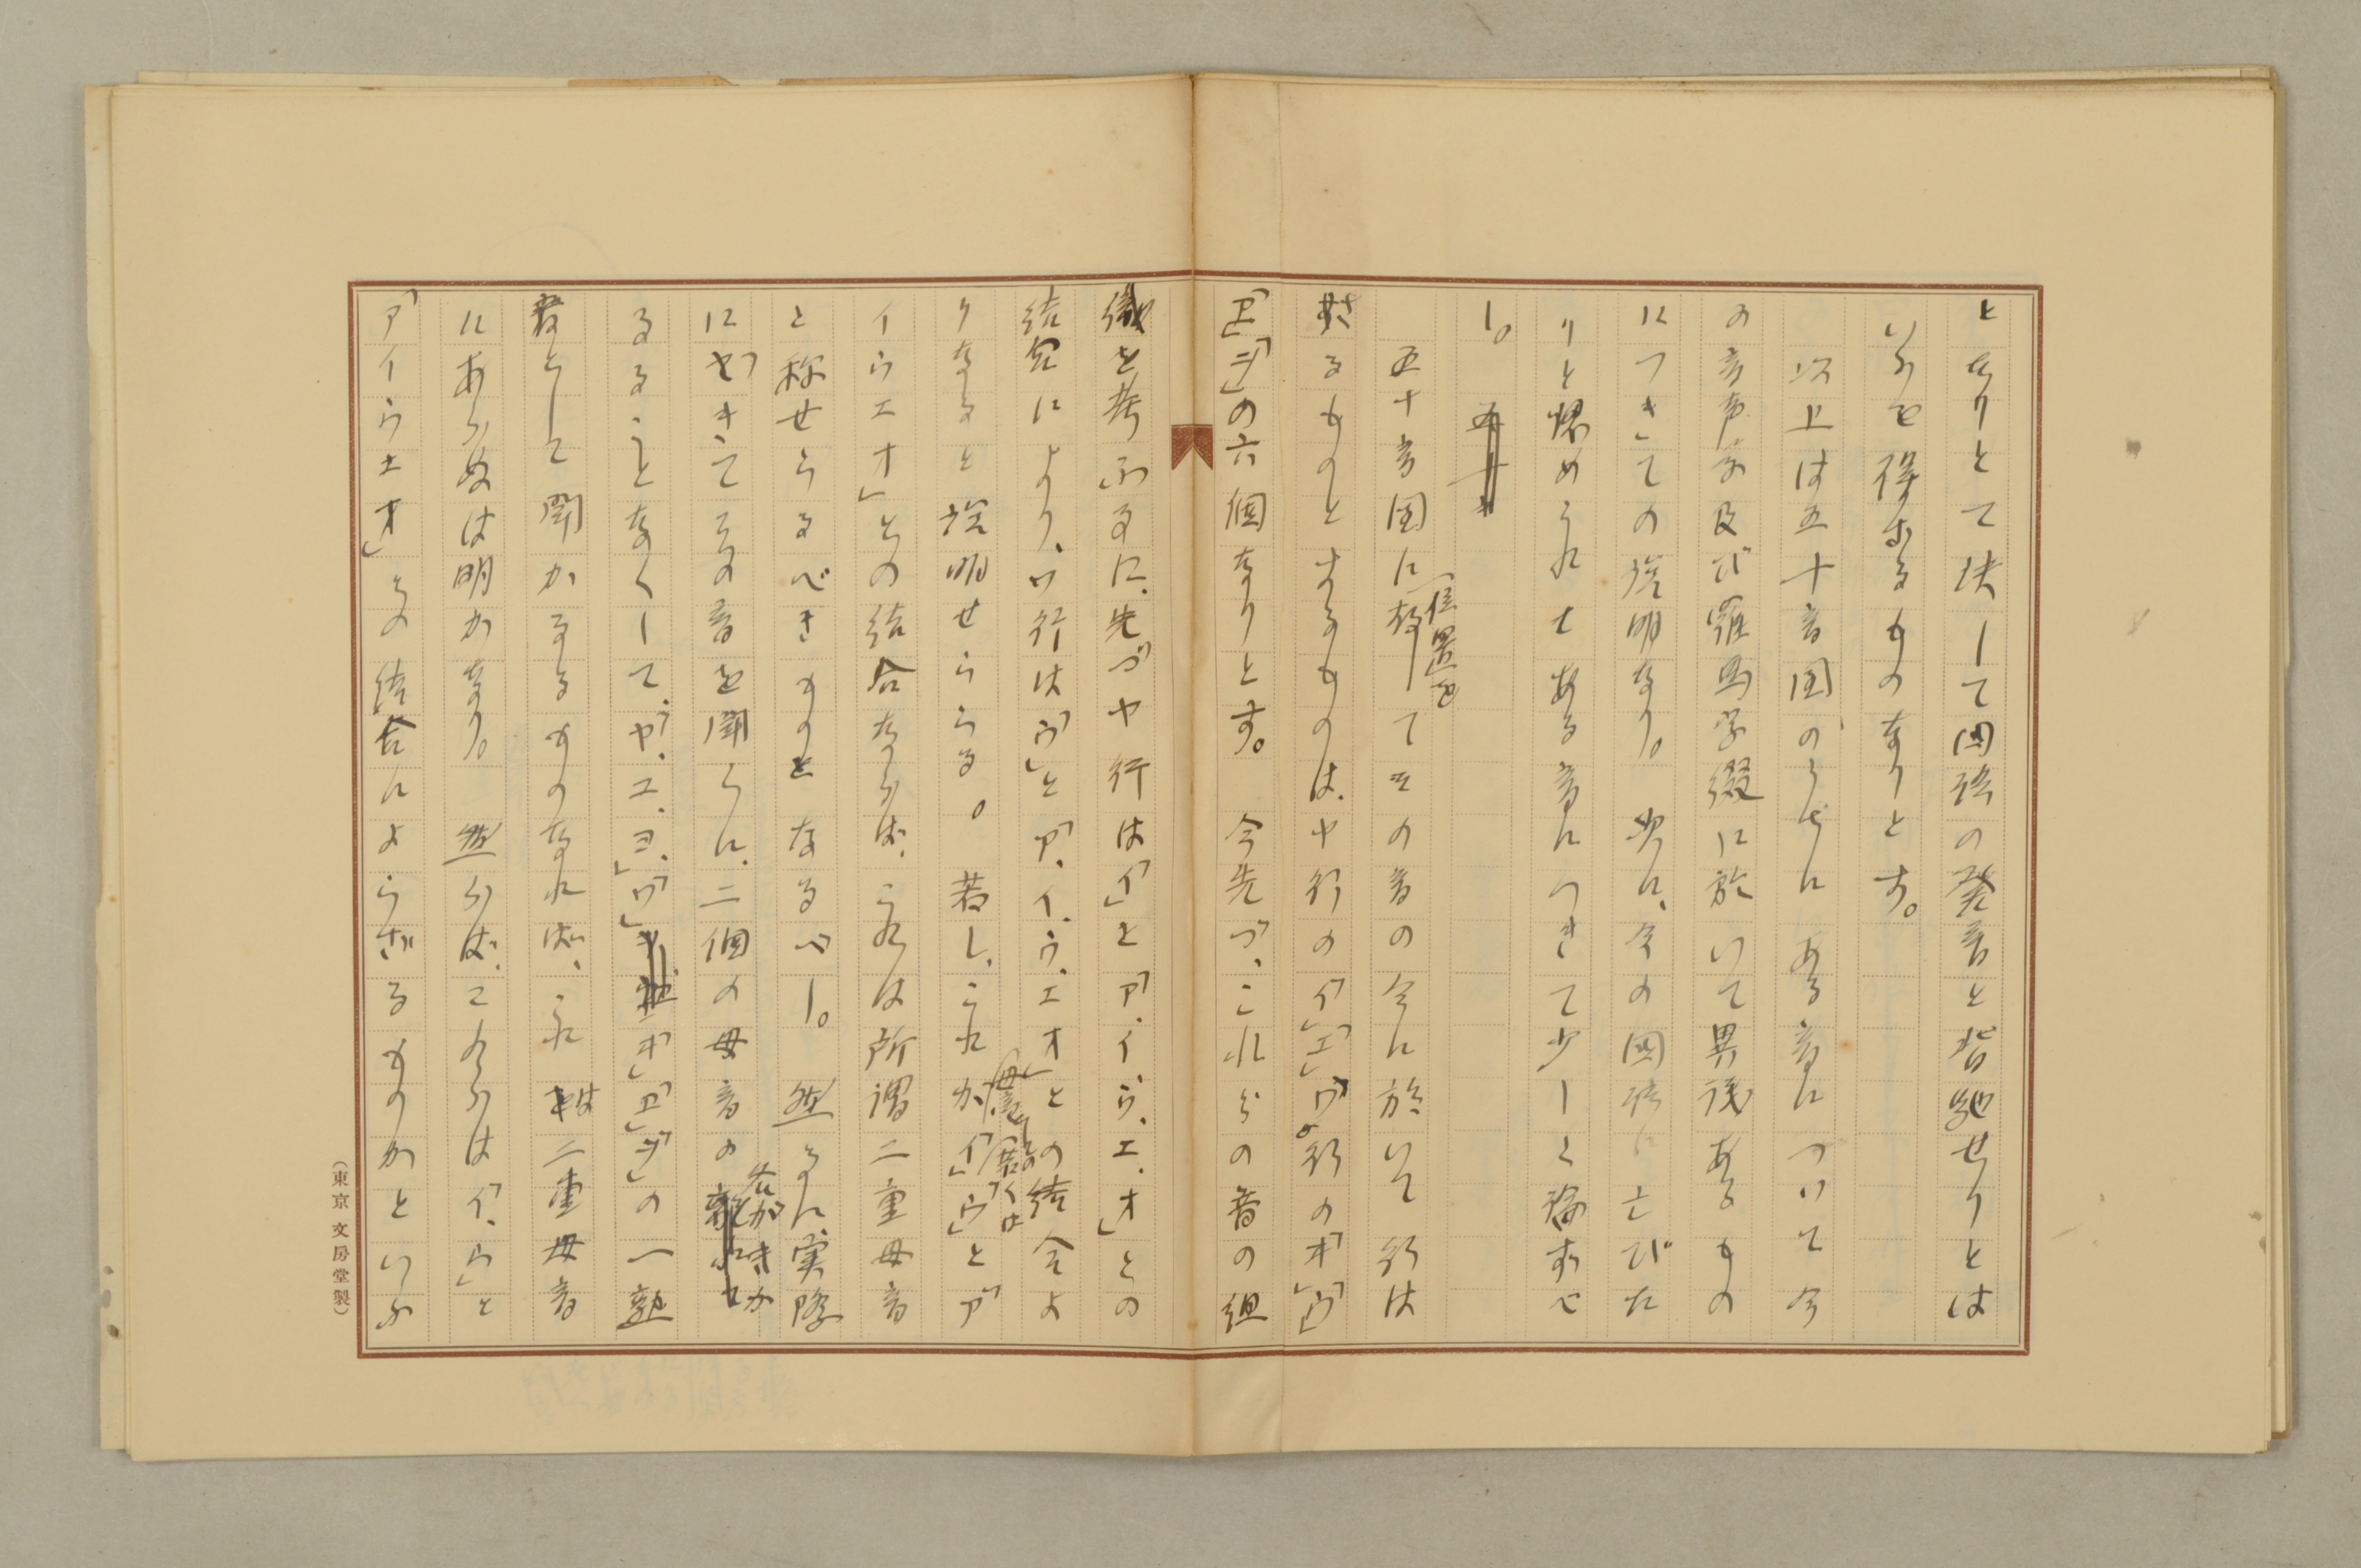 となりとて決して国語の発音と背馳せりとは
いふを得ざるものなりとす。
以上は五十音図のうちにある音について今
の音声学及び羅馬字綴に於いて異議あるもの
につきての説明なり。次に、今の国語に亡びた
りと認められてある音につきて少しく論ずべ
し。
五十音図に位置を教へてその音の今に於いて行は
れざるものとするものは、ヤ行の「イ」「エ」ワ行の「オ」「ウ」
「ヱ」「ヰ」の六個なりとす。今先づ、これらの音の組
織を考ふるに、先づヤ行は「イ」と「ア、イ、ウ、エ、オ」との
結合により、ワ行は「ウ」と「ア、イ、ウ、エ、オ」との結合よ
りなると説明せらる。若し、これが母音としての「イ」若くは「ウ」と「ア
イウエオ」との結合ならば、これは所謂二重母音
と称せらるべきものとなるべし。然るに、実際
に「ヤ」きてその音を聞くに、二個の母音の
るることなくして、「ヤ、エ、ヨ、」「ワ」「オ」「ヱ」「ヰ」の一熟
音として聞かるるものなれば、これは二重母音
にあらぬは明かなり。然らば、これらは「イ、ウ」と
「アイウエオ」との結合によらざるものかといふ
（東京 文房堂製）